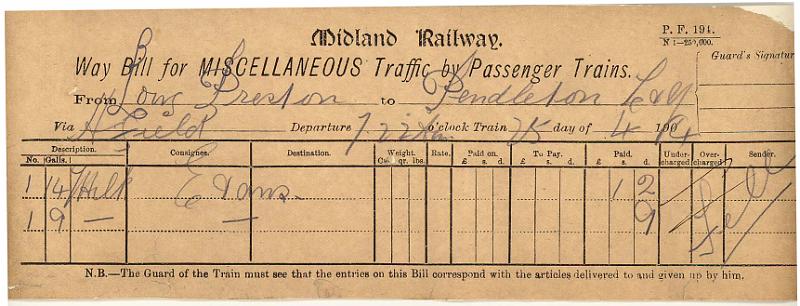 Midland Railway.
P. F. 194.
N 1—250,000.
Way Bill for MISCELLANEOUS Traffic by Passenger Trains.
Guard's Signatur
From Long Preston to Pendleton L&Y
Via H Field Departure 7. o'clock Train 25 day of 4 190
Description. Consignee. Destination. Weight. Rate. Paid on. To Pay. Paid. Under-charged Over-charged Sender.
No. Galls. Cwt. qr. lbs. £ s. d. £ s. d. £ s. d.
1 14 Milk Evans 1 2 Fell
1 9 — — 9
N.B.—The Guard of the Train must see that the entries on this Bill correspond with the articles delivered to and given up by him.